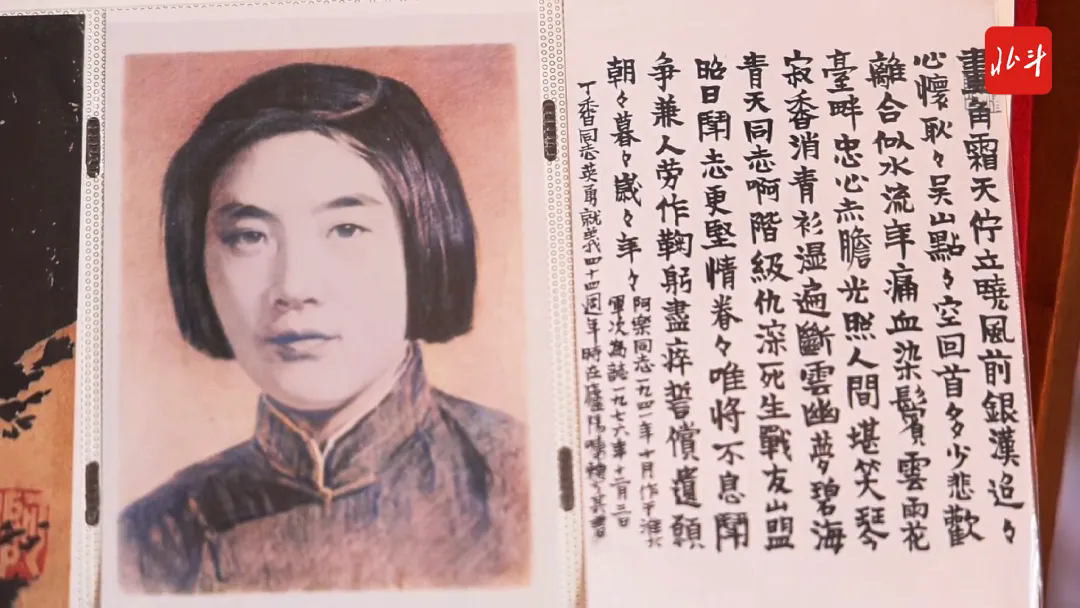 北斗
畫角霜天佇立曉風前銀漢迢々
心懷耿々吴山點々空回首多少悲歡
離合似水流年痛血染鬢雲雨花
臺畔忠心赤膽光照人間堪笑琴
寂香消青衫湿遍斷雲幽夢碧海
青天同志啊階級仇深死生戰友山盟
昭日鬭志更堅情眷々唯將不息鬭
争兼人劳作鞠躬盡瘁誓償遺願
朝々暮々嵗々年々
阿樂同志一九四一年十月作于淮北
軍次為誌一九七六年十二月三日
丁香同志英勇就義四十四週年時在廬陽